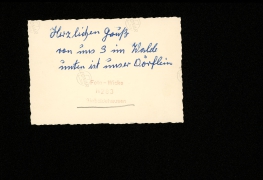 Herzlichen Gruß
von uns 3 im Walde
unten ist unser Dörflein